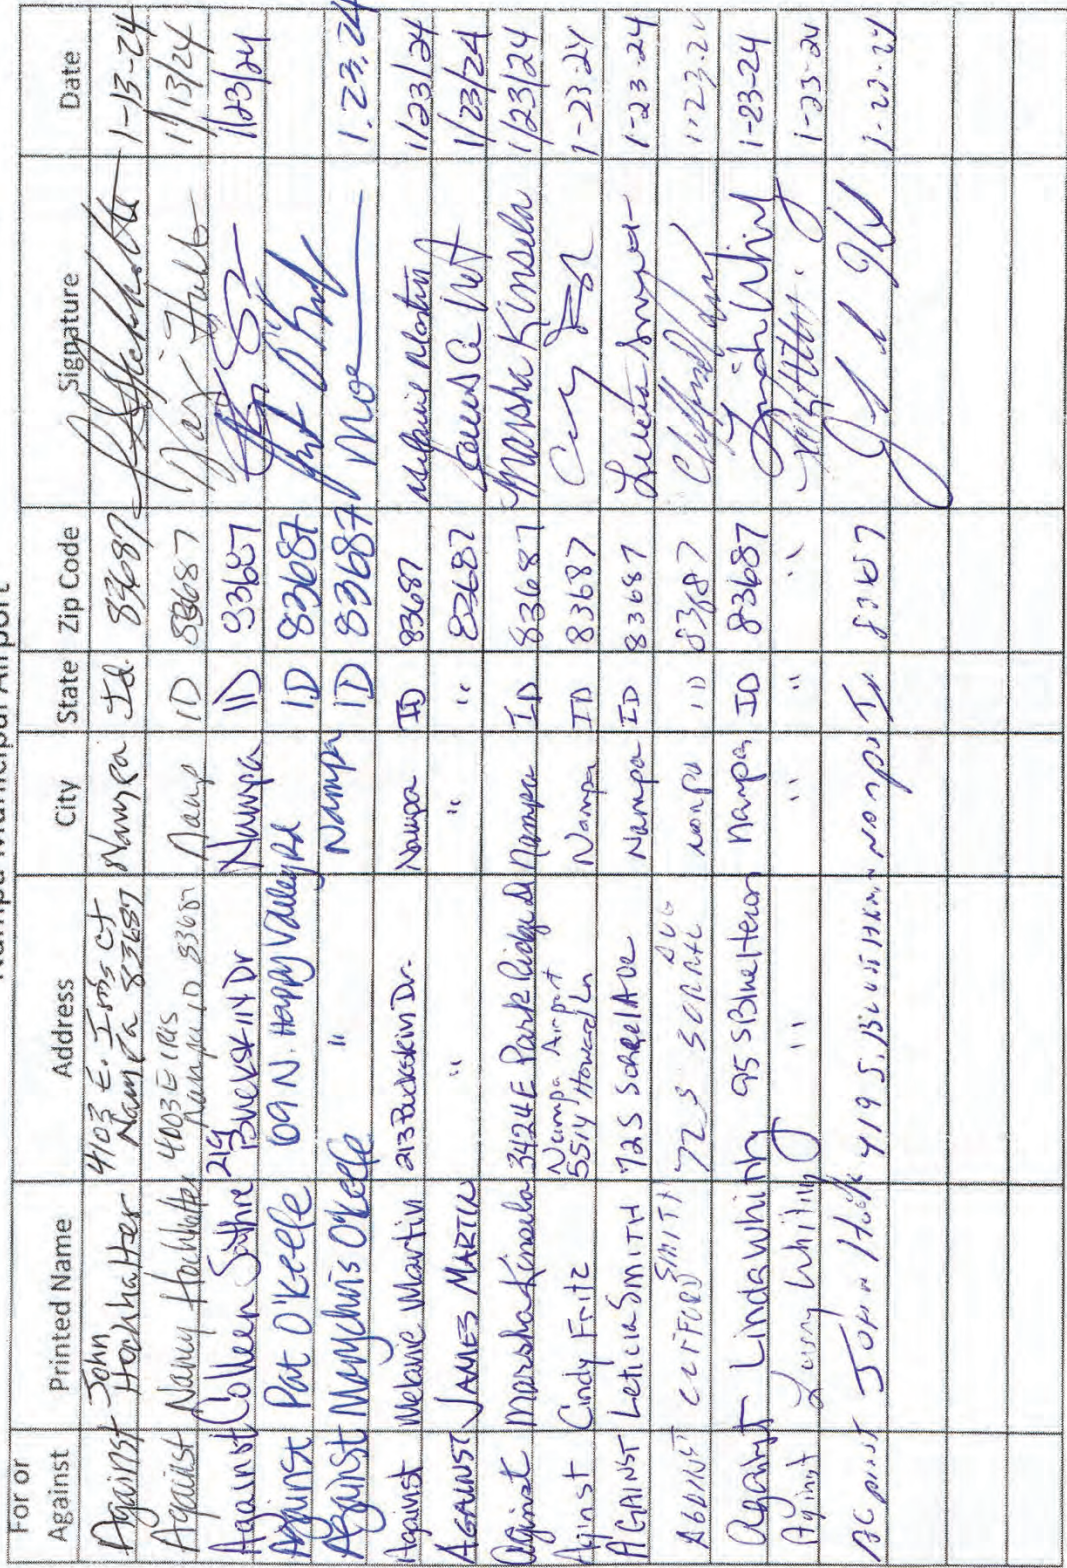 Nampa Municipal Airport
For or Against Printed Name Address City State Zip Code Signature Date
Against John Hochhalter 4103 E. Iris Ct Nampa 83687 Nampa Id. 83687 1-13-24
Against Nancy Hochhalter 4003 E IRIS Nampa, ID 83687 Namp ID 83687 1/13/24
Against Colleen 219 Buckskin Dr Nampa ID 83687 1/23/24
Against Pat O'Keefe 69 N. Happy Valley Rd ID 83687
Against Marychris O'Keefe " Nampa ID 83687 1.23.24
Against Melanie Martin 213 Buckskin Dr. Nampa ID 83687 Melanie Martin 1/23/24
AGAINST JAMES MARTIN " " " 83687 1/23/24
Against Marsha Kinsela 3424 E Park Ridge Dr Nampa ID 83687 Marsha Kinsela 1/23/24
Aginst Cindy Fritz Nampa Airport 5514 Howard Ln Nampa ID 83687 1-23-24
AGAINST Leticia SMITH 72 S Nampa ID 83687 1-23-24
AGAINST CLIFFORD SMITH 72 S AVE Nampa ID 83687
Against Linda Whiting 95 S Blue Heron Nampa ID 83687 Linda Whiting 1-23-24
Against Larry Whiting " " " " 1-23-24
John 419 S. Nampa